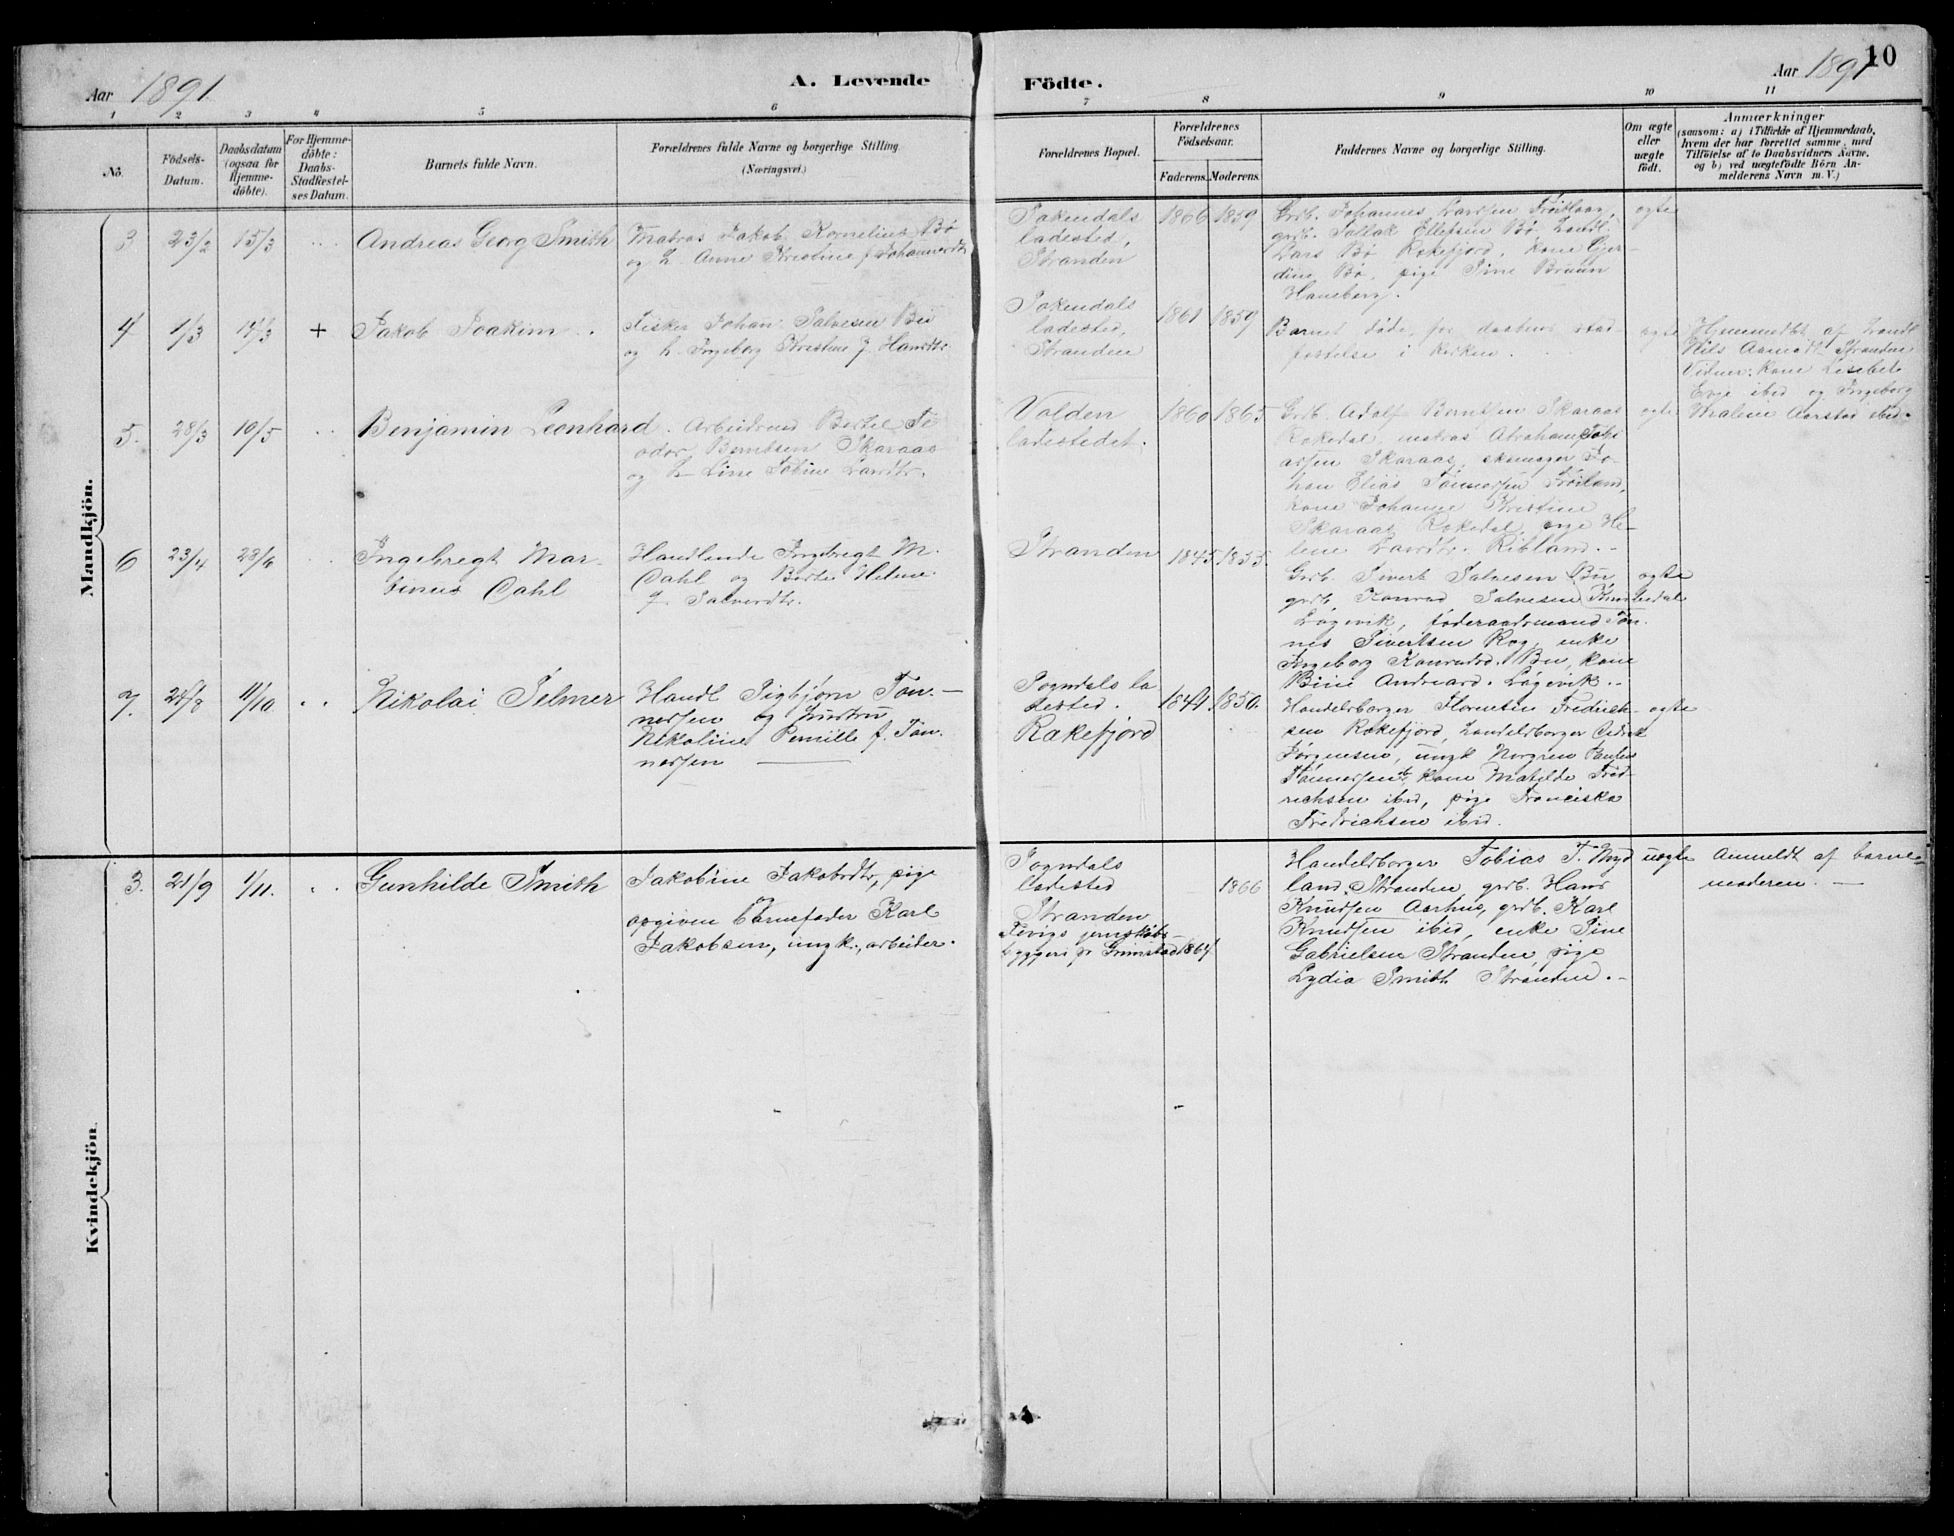 10
Aar 1891
A. Levende
Födte.
Aar 1891
1 2 3 4 5 6 7 8 9 10 11
No.
Födsels-
Datum.
Daabsdatum
(ogsaa for
Hjemme-
döbte).
For Hjemme-
döbte:
Daabs-
Stadfestel-
ses Datum.
Barnets fulde Navn.
Forældrenes fulde Navne og borgerlige Stilling.
(Næringsvei.)
Forældrenes Bopæl.
Forældrenes
Födselsaar.
Faderens.
Moderens.
Faddernes Navne og borgerlige Stilling.
Om ægte
eller
uægte
födt.
Anmærkninger
(saasom: a) i Tilfælde af Hjemmedaab,
hvem der har forrettet samme, med
Tilföielse af to Daabsvidners Navne,
og b) ved uægtefödte Börn An-
melderens Navn m. V.)
Mandkjön.
3
23/2
15/3
Andreas Georg Smith
Matros Jakob Kornelius Bø
og h. Anne Kristine f. Johannesdtr
Sokndals
ladested,
Stranden
1866
1859
Grb. Johannes Larsen Frøitlaag,
grb. Sallak Ellefsen Bø, Handl.
Lars Bø Rekefjord, kone Gjer-
dine Bø, pige Sine Bruun
Haneberg.
ægte
4
1/3
17/3
+
Jakob Joakim
Fisker Johan Salvesen Bu
og h. Ingeborg Kristine f. Hansdtr
Sokndals
ladested,
Stranden
1861
1859
Barnet døde før daabens stad-
festelse i kirken.
ægte
Hjemmedøbt af Handl.
Nils Aamodt Stranden
Vidner: kone Lisebet
Evje ibid og Ingeborg
Malene Aarstad ibid.
5.
28/3
10/5
Benjamin Leonhard.
Arbeidsmd Bertel Te-
odor Berntsen Skaraas
og h. Line Tobine Larsdtr.
Volden
ladestedet.
1860
1865
Grb. Adolf Berntsen Skaraas
Rekedal, matros Abraham Tobi-
assen Skaraas, skomager Jo-
han Elias Tønnessen Frøiland,
kone Johanne Kristine
Skaraas Rekedal, pige He-
lene Larsdtr. Ribland.
ægte
6
23/4
28/6
Ingebregt Mar-
tinus Dahl
Handlende Ingebregt M.
Dahl og Berte Helene
f. Salvesdtr.
Stranden
1845.
1855.
Grb. Sivert Salvesen Bu,
grb. Konrad Salvesen
Løgevik, føderaadsmand Tøn-
nes Sivertsen Røg, enke
Ingeborg Konradsd. Bu, kone
Bine Andreasd. Løgevik.
ægte
7.
11/10
Nikolai Selmer
Handl. Sigbjørn Tøn-
nessen og hustru
Nikoline Pernille f. Tøn-
nessen
Sogndals la-
dested.
Rækefjord
1844.
1850.
Handelsborger Florentin Fredrich-
sen Rekefjord, Handelsborger Cedrik
Jørgensen, ungk. Norgren
Tønnessen, kone Matylde Fred-
richsen ibid, pige Franciska
Fredrichsen ibid.
ægte
Kvindekjön.
3.
21/9
1/11.
Gunhilde Smith
Jakobine Jakobsdtr, pige
og
opgiven barnefader Karl
Jakobsen, ungk., arbeider.
Sogndals
ladested
Stranden
Fevigs jernskibs-
byggeri pr Grimstad
1867
1866
Handelsborger Tobias T. Myd-
land, Stranden, grb. Hans
Knudsen Aarhus, grb. Karl
Knudsen ibid, enke Sine
Gabrielsen Stranden, pige
Lydia Smith Stranden.
uægte
Anmeldt af barne-
moderen.